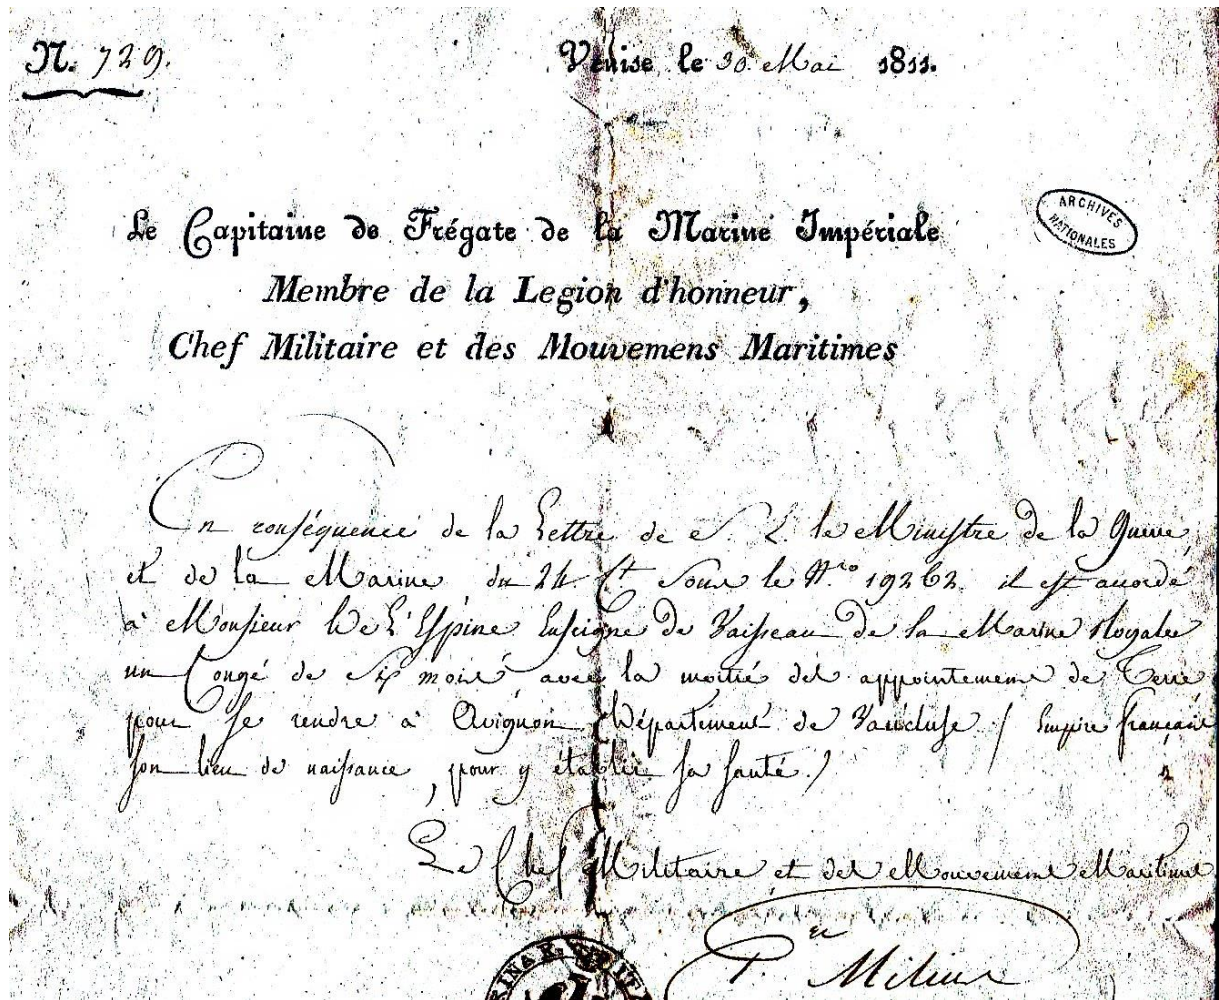 N. 729.
Venise le 30. Mai 1811.
ARCHIVES
NATIONALES
Le Capitaine de Frégate de la Marine Impériale
Membre de la Legion d'honneur,
Chef Militaire et des Mouvemens Maritimes
En conséquence de la Lettre de S. E. le Ministre de la Guerre,
et de la Marine du 24 Ct Sous le Nro 19262 il est accordé
à Monsieur De L'Espine Enseigne de Vaisseau de la Marine Royale
un Congé de Six mois, avec la moitié des appointemens de Terre
pour se rendre à Avignon Département de Vaucluse / Empire français
son lieu de naissance, pour y établir sa santé./
Le Chef Militaire et des Mouvemens Maritimes
Milius